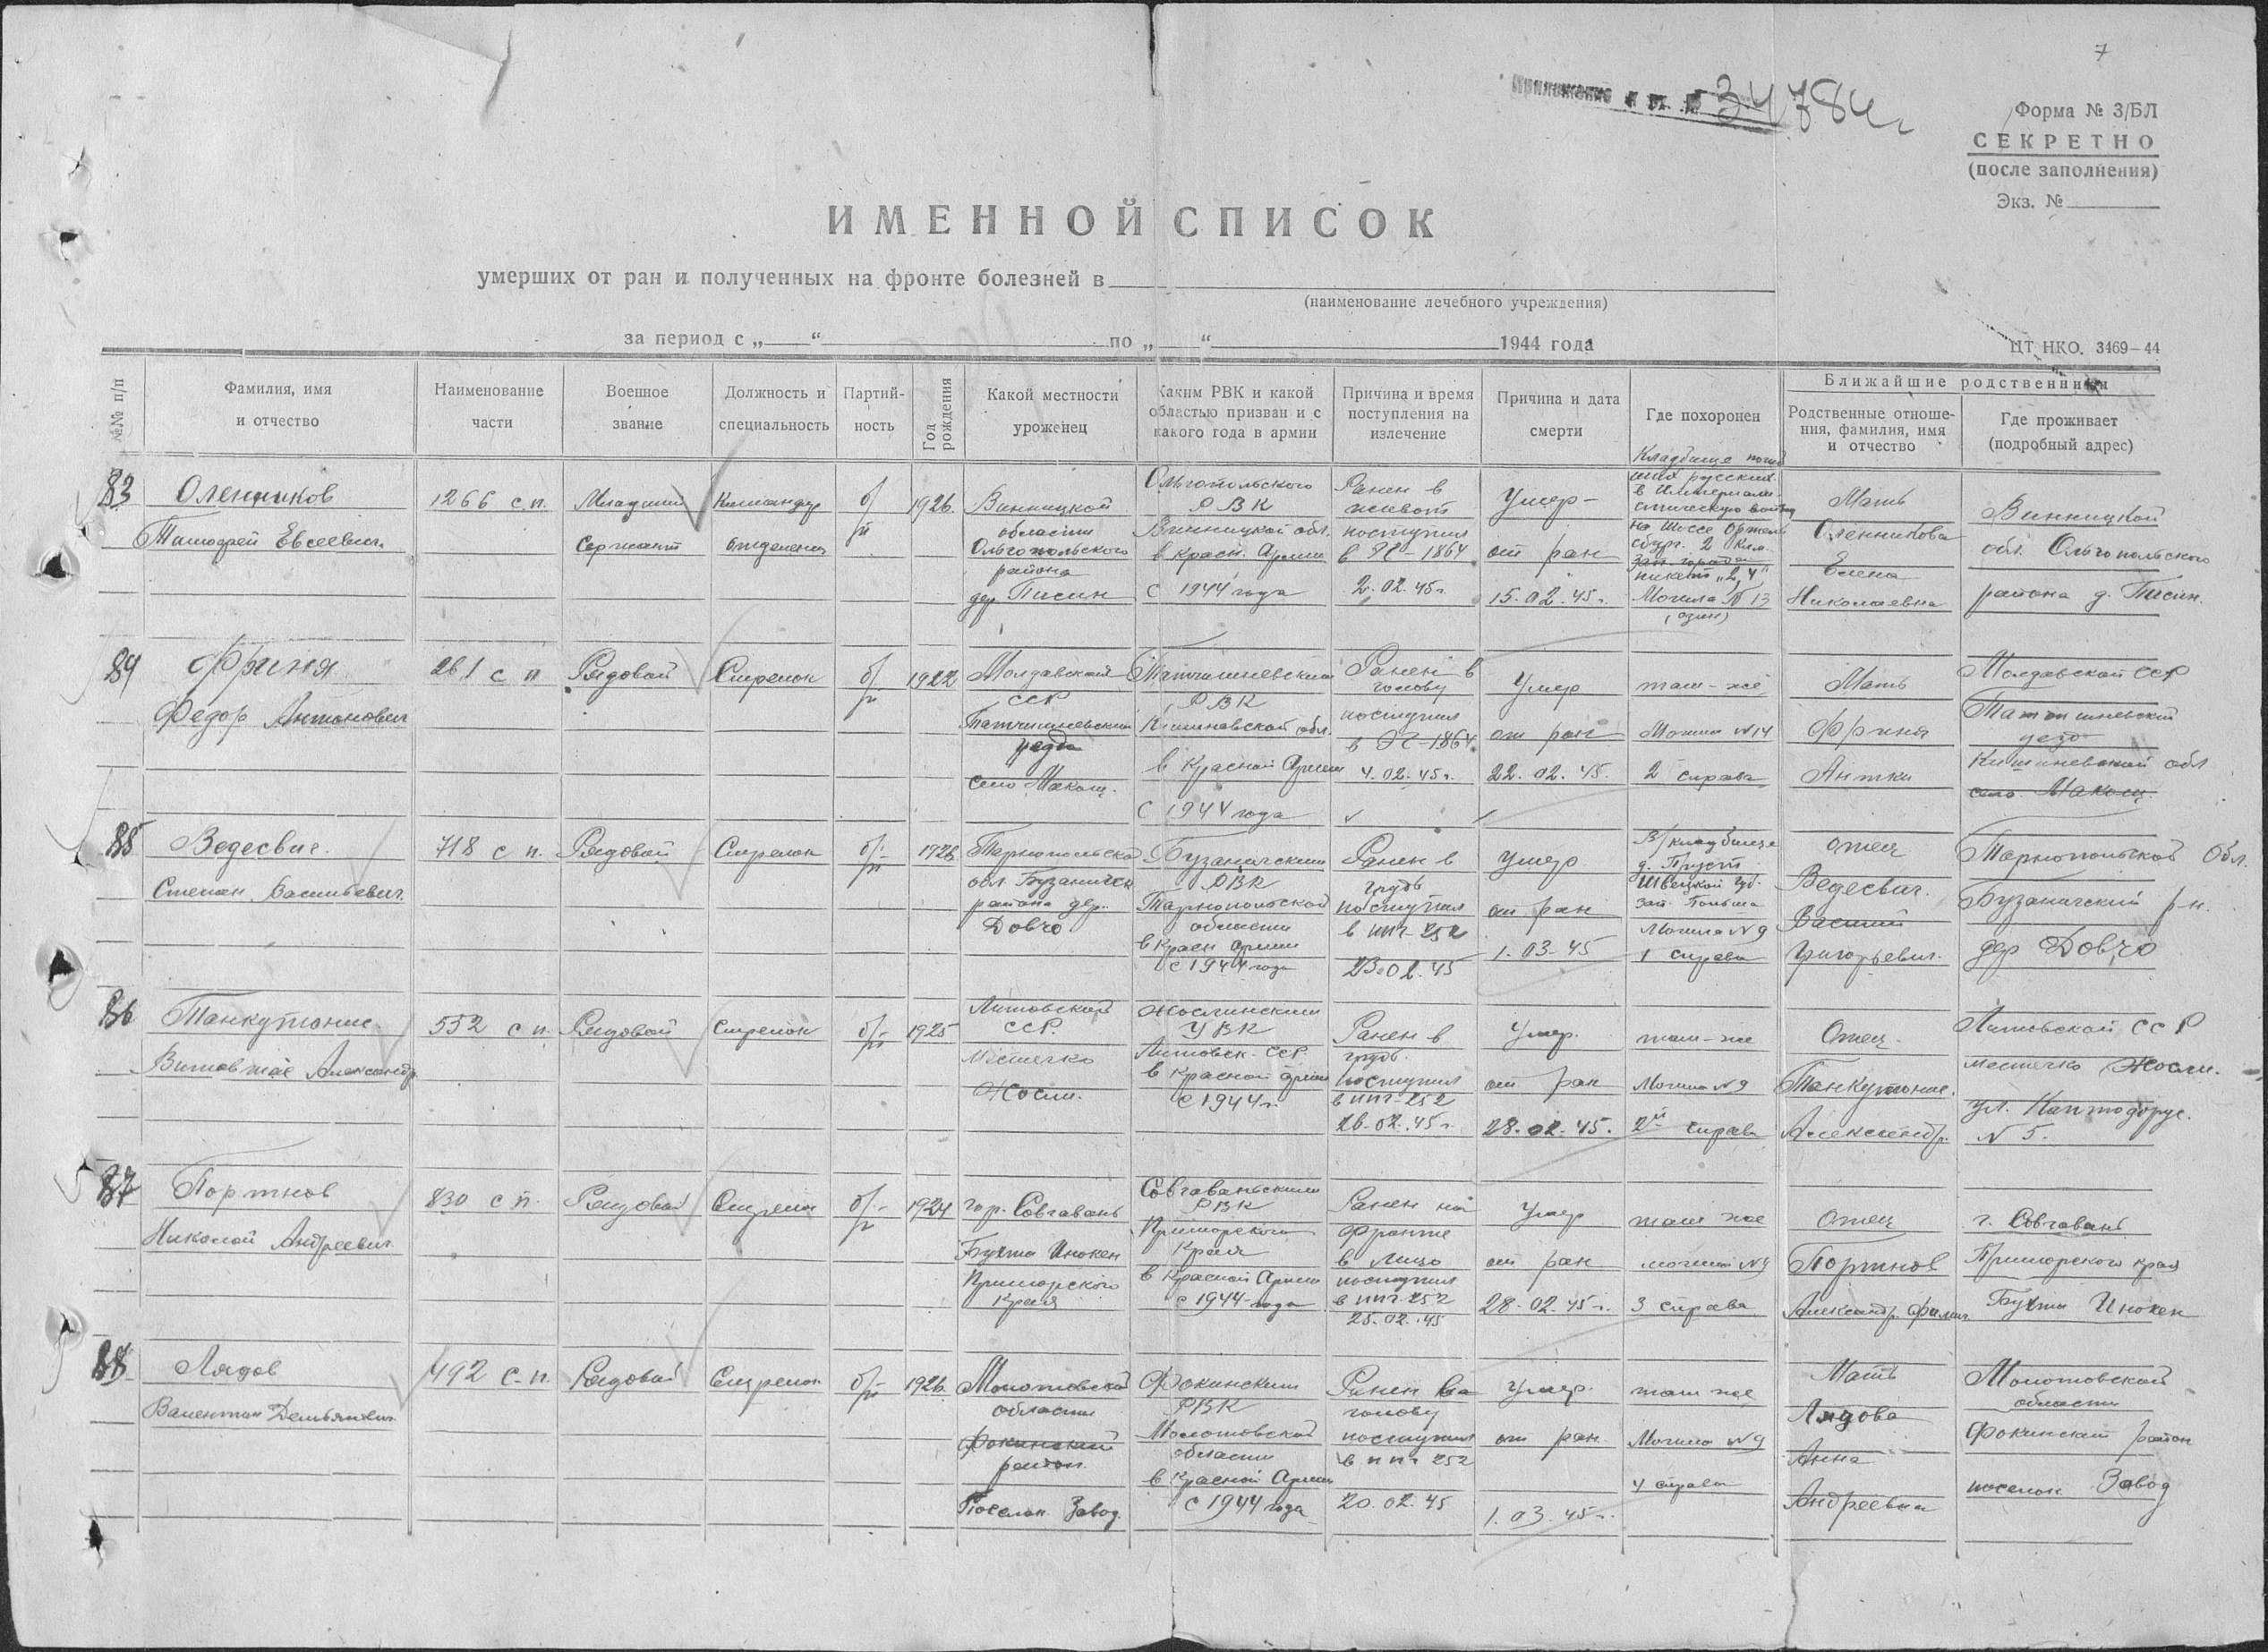 7
Приложение к вх. № 34784с
Форма № 3/БЛ
СЕКРЕТНО
(после заполнения)
Экз. №
ИМЕННОЙ СПИСОК
умерших от ран и полученных на фронте болезней в
(наименование лечебного учреждения)
за период с „ “ по „ “ 1944 года
ЦТ НКО. 3469–44
№№ п/п
Фамилия, имя
и отчество
Наименование
части
Военное
звание
Должность и
специальность
Партий-
ность
Год
рождения
Какой местности
уроженец
Каким РВК и какой
областью призван и с
какого года в армии
Причина и время
поступления на
излечение
Причина и дата
смерти
Где похоронен
Ближайшие родственники
Родственные отноше-
ния, фамилия, имя
и отчество
Где проживает
(подробный адрес)
83
Оленников
Тимофей Евсеевич
1266 с.п.
Младший
Сержант
Командир
отделения
б/п
1926
Винницкой
области
Ольгопольского
района
дер.
Ольгопольского
РВК
Винницкой обл.
в Красн. Армии
с 1944 года
Ранен в
живот
поступил
в ЭГ-1864
2.02.45г.
Умер
от ран
15.02.45г.
Кладбище
русских
в Империали-
стическую войну
на шоссе
2 клм.
зап. города
пикет „2,4“
Могила № 13
(один)
Мать
Оленникова
Елена
Николаевна
Винницкой
обл. Ольгопольского
района д.
84
Фриня
Федор Антонович
261 с п
Рядовой
Стрелок
б/п
1922
Молдавской
ССР
уезда
село
РВК
Кишиневской обл.
в Красной Армии
с 1944 года
Ранен в
голову
поступил
в ЭГ-1864
4.02.45г.
Умер
от ран
22.02.45.
там-же
Могила №14
2 справа
Мать
Фриня
Молдавской ССР
уезд
Кишиневской обл
село
85
Ведесвич.
Степан Васильевич
718 с п.
Рядовой
Стрелок
б/п
1926
Тарнопольской
обл.
района дер.
Довчо
РВК
Тарнопольской
области
в Красн Армии
с 1944 года
Ранен в
грудь
поступил
в ППГ-252
23.02.45
Умер
от ран
1.03.45
В/кладбище
зап. Польша
Могила №9
1 справа
отец
Ведесвич.
Василий
Григорьевич.
Тарнопольской Обл.
р-н.
дер Довчо
86
Танкутонис
552 с п.
Рядовой
Стрелок
б/п
1925
Литовской
ССР.
Местечко
Жосли.
Жослинским
УВК
Литовск. ССР.
в Красной Армии
с 1944г.
Ранен в
грудь.
поступил
в ППГ-252
26.02.45г.
Умер.
от ран
28.02.45.
там-же
Могила №9
2й справа
Отец.
Танкутонис.
Александр.
Литовской ССР
местечко Жосли.
№ 5.
87
Портнов
Николай Андреевич
830 с п.
Рядовой
Стрелок
б/п
1924
гор. Совгавань
Бухта Инокен
Приморского
Края
Совгаваньским
РВК
Приморского
Края
в Красной Армии
с 1944 года
Ранен на
фронте
в лицо
поступил
в ППГ-252
25.02.45
Умер
от ран
28.02.45г.
там же
могила №9
3 справа
отец
Портнов
Александр
г. Совгавань
Приморского края
Бухта Инокен
88
Лядов
Валентин Демьянович
492 с.п.
Рядовой
Стрелок
б/п
1926.
Молотовской
области
Фокинский
район
Поселок Завод.
Фокинским
РВК
Молотовской
области
в Красной Армии
с 1944 года
Ранен в
голову
поступил
в ппг 252
20.02.45
Умер.
от ран
1.03.45г.
там же
Могила №9
4 справа
Мать
Лядова
Анна
Андреевна
Молотовской
области
Фокинский район
поселок Завод